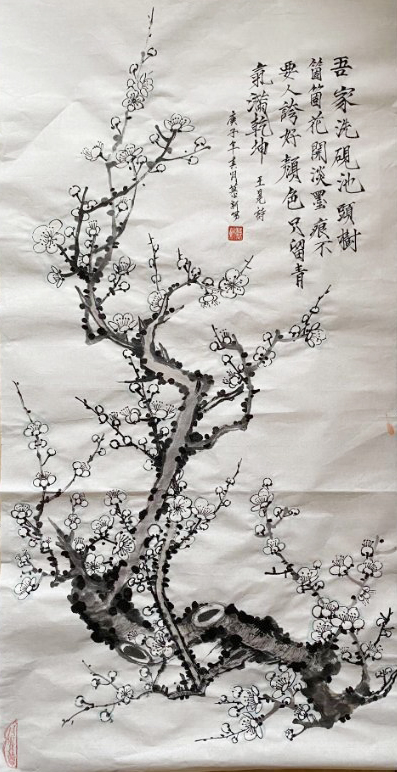 吾家洗硯池頭樹
箇箇花開淡墨痕不
要人誇好顏色只留青
氣滿乾坤
王冕詩
庚子年